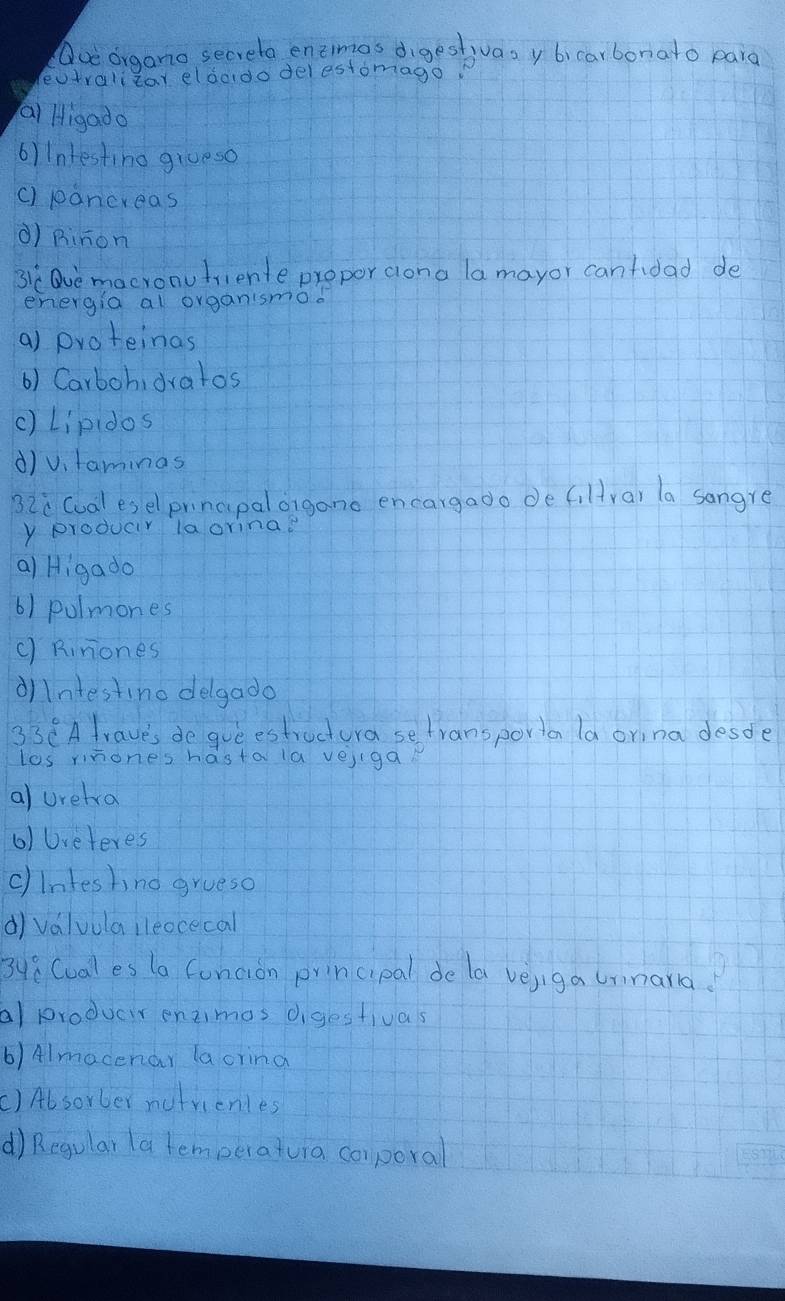 ¿Qué órgano secreta enzimas digestivas y bicarbonato para
neutralizar el ácido del estómago?
a) Higado
b) Intestino grueso
c) páncreas
d) Riñon
31¿Qué macronutriente proporciona la mayor cantidad de
energía al organismo?
a) proteinas
b) Carbohidratos
c) Lípidos
d) vitaminas
32¿Cual es el principal órgano encargado de filtrar la sangre
y producir la orina?
a) Higado
b) pulmones
c) Riñones
d) Intestino delgado
33¿A través de qué estructura se transporta la orina desde
los riñones hasta la vejiga?
a) Uretra
b) Uréteres
c) Intestino grueso
d) válvula ileocecal
34¿Cual es la función principal de la vejiga urinaria?
a) producir enzimas digestivas
b) Almacenar la orina
c) Absorber nutrientes
d) Regular la temperatura corporal